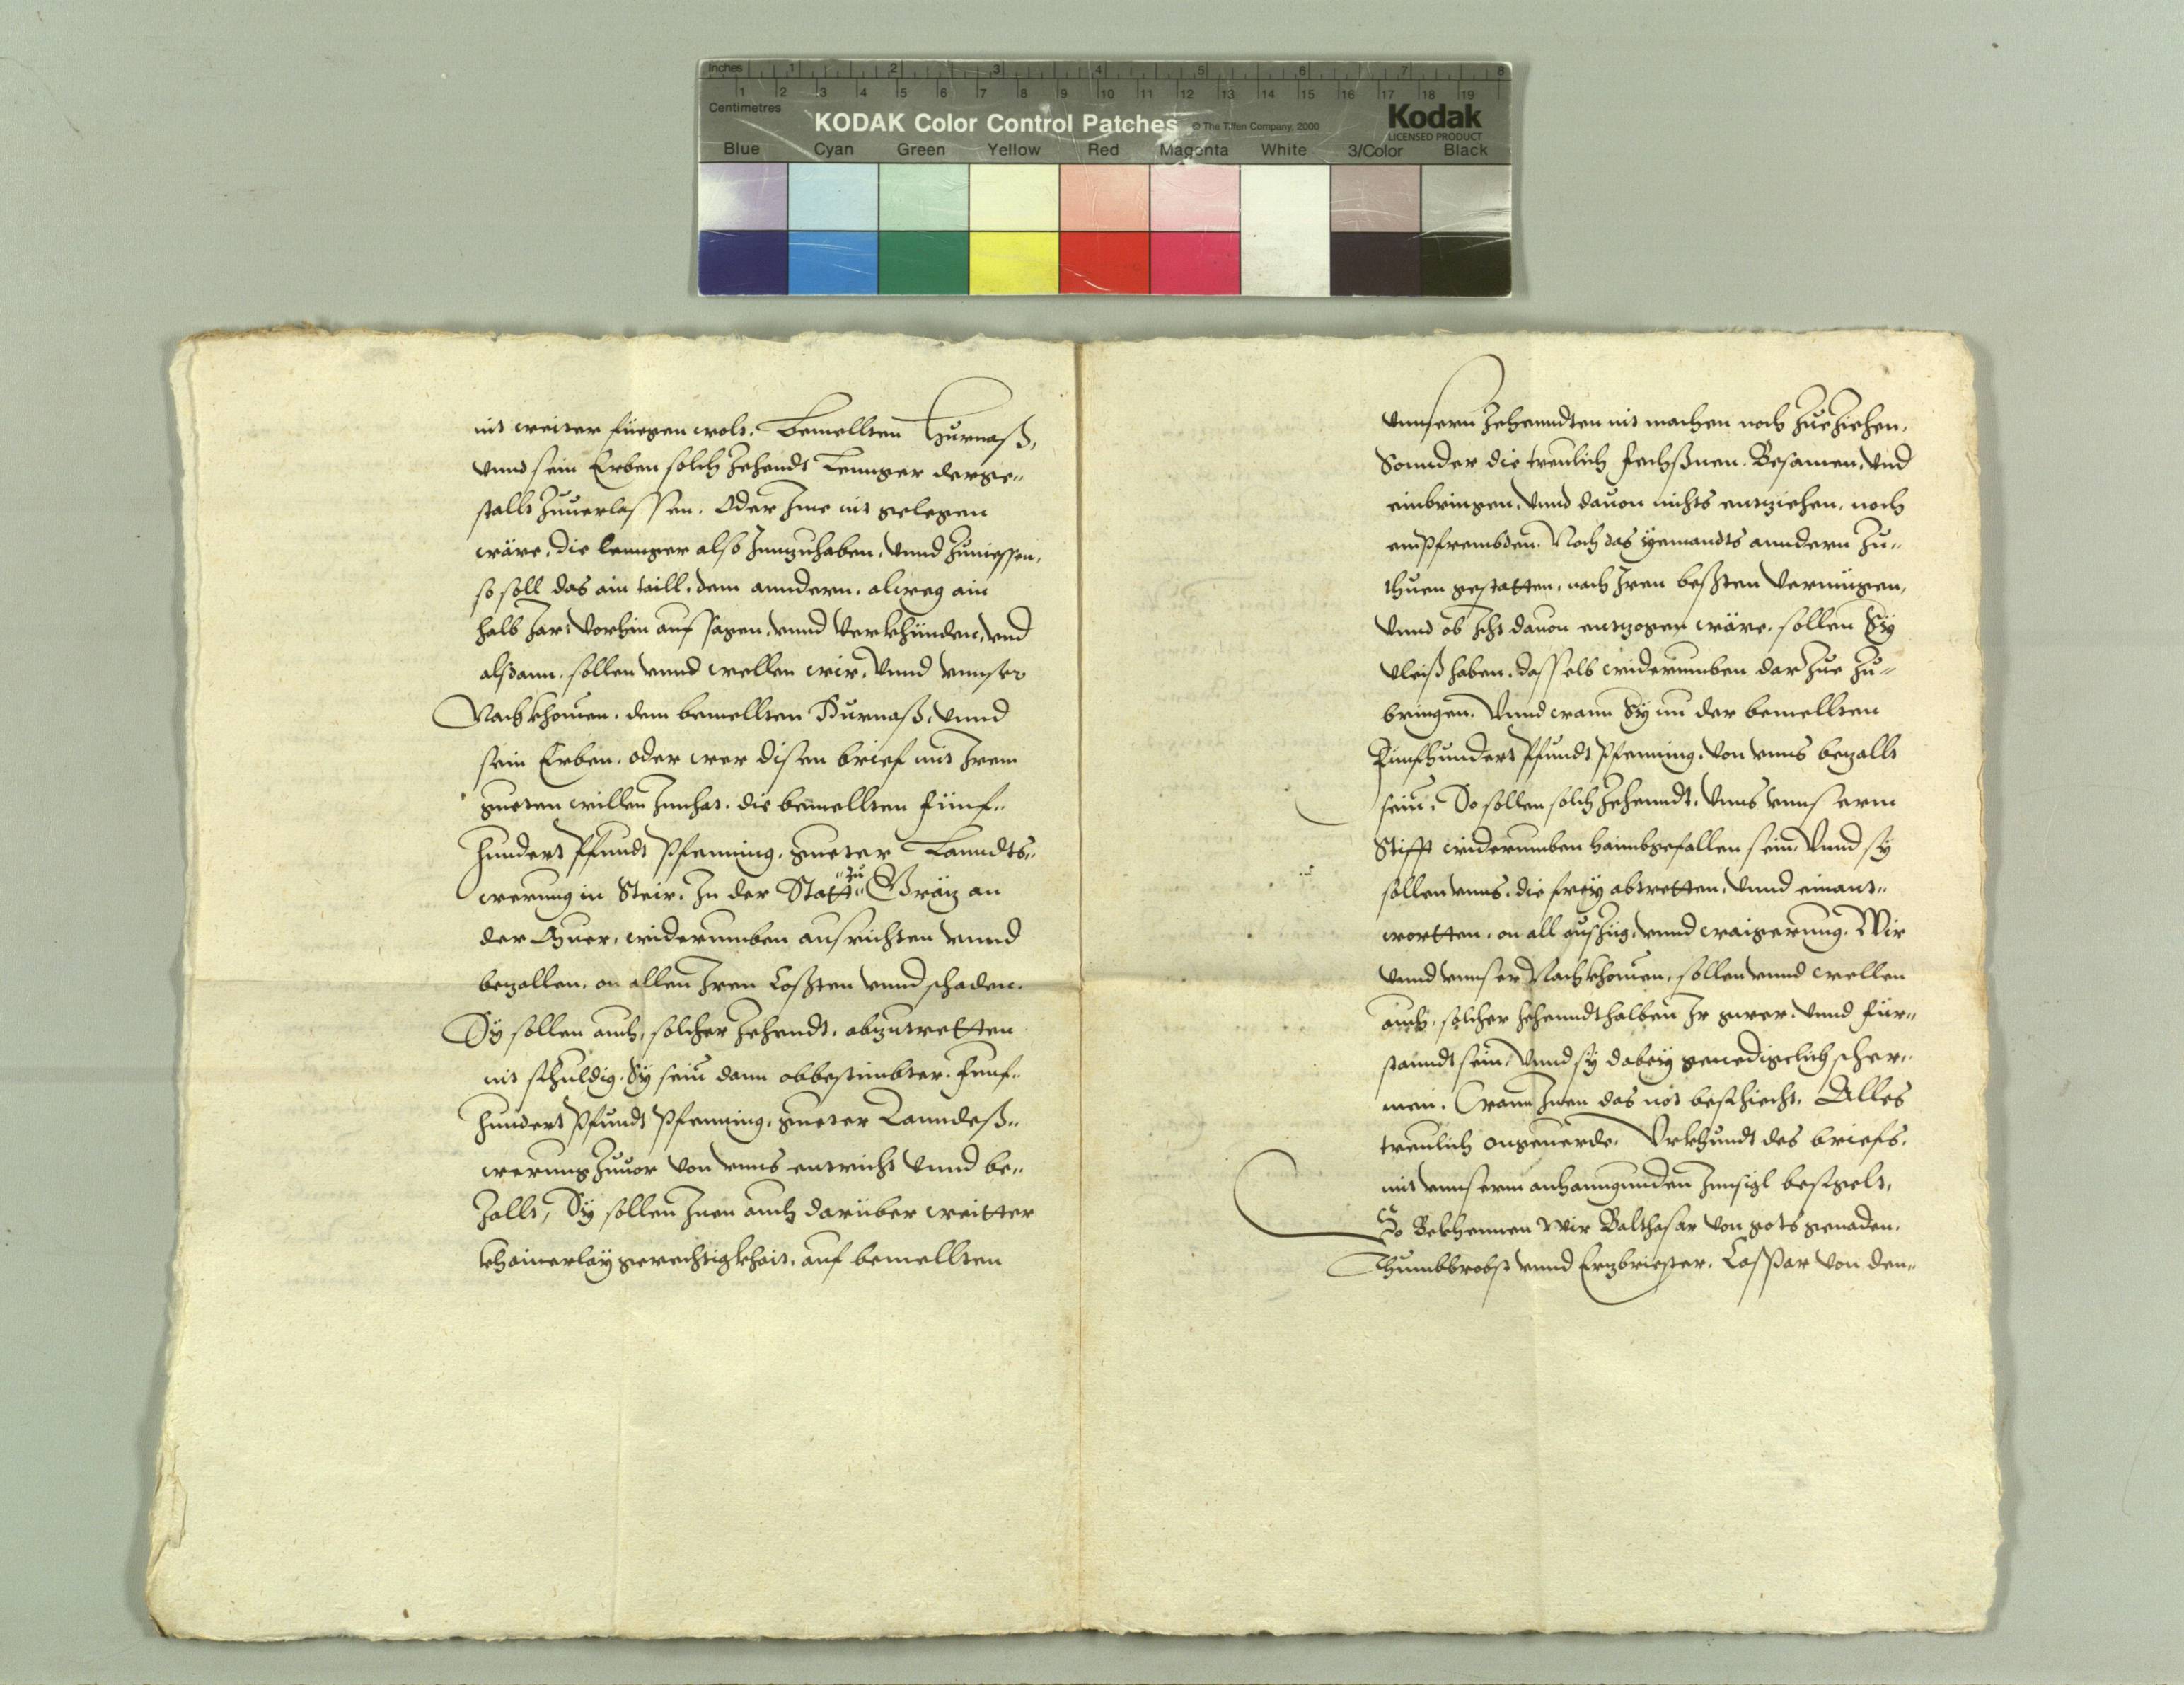 Inches 1 2 3 4 5 6 7 8
1 2 3 4 5 6 7 8 9 10 11 12 13 14 15 16 17 18 19
Centimetres
KODAK Color Control Patches © The Tiffen Company, 2000 Kodak
LICENSED PRODUCT
Blue Cyan Green Yellow Red Magenta White 3/Color Black
nit weiter füegen wolt. Bemellten Hurnaß,
vnnd sein Erben solch zehendt lennger derge„
stallt zuuerlassen. Oder Ime nit gelegen
wäre, die lennger also Innzuhaben, vnnd zuniessen,
so soll das ain taill, dem anndern, alweg ain
halb Jar, vorhin auf sagen, vnnd verkhünden, vnd
alßdann, sollen vnnd wellen wir, vnnd vnnser
Nachkhomen, dem bemellten Hurnaß, vnnd
sein Erben, oder wer disen brief mit Irem
gueten willen Innhat, die bemellten fünf„
hundert Pfundt Pfenning, gueter Lanndts„
werung in Steir, In der Statt „zu„ Gräz an
der Muer, widerumben ausrichten vnnd
bezallen, on allen Iren Cossten vnnd schaden.
Sy sollen auch, solcher zehendt, abzutretten
nit schuldig, Sy sein dann obbestimbter, funf„
hundert Pfundt Pfenning, gueter Lanndeß„
werung zuuor von vnns entricht vnnd be„
zallt, Sy sollen Inen auch darüber weitter
khainerlay gerechtigkhait, auf bemellten
vnnsern zehenndten nit machen noch zueziehen,
Sonnder die treulich fechßnen, Besamen, vnd
einbringen, vnnd dauon nichts entziehen, noch
empfrembden. Noch das yemandts anndern zu„
thuen gestatten, nach Iren bessten vermügen,
vnnd ob Icht dauon entzogen wäre, sollen Sy
vleiß haben, dasselb widerumben dar zue zu„
bringen. Vnnd wann Sy nu der bemellten
Fünfhundert Pfundt Pfenning, von vnns bezallt
sein, So sollen solch zehenndt, vnns vnnserm
Stifft widerumben haimbgefallen sein, Vnnd sy
sollen vnns, die frey abtretten, vnnd einant„
wortten, on all auszüg, vnnd waigerung. Wir
vnnd vnnser Nachkhomen, sollen vnnd wellen
auch, solcher zehenndt halben Ir gwer, vnnd für„
stanndt sein, vnnd sy dabey genedigclich scher„
men. Wann Inen das not beschiecht. Alles
treulich ongeuerde. Vrkhundt des briefs,
mit vnnserm anhanngunden Innsigl besigelt,
So Bekhennen Wir Balthasar von gots genaden,
Thumbbrobst vnnd Erzbriester, Casspar von den„